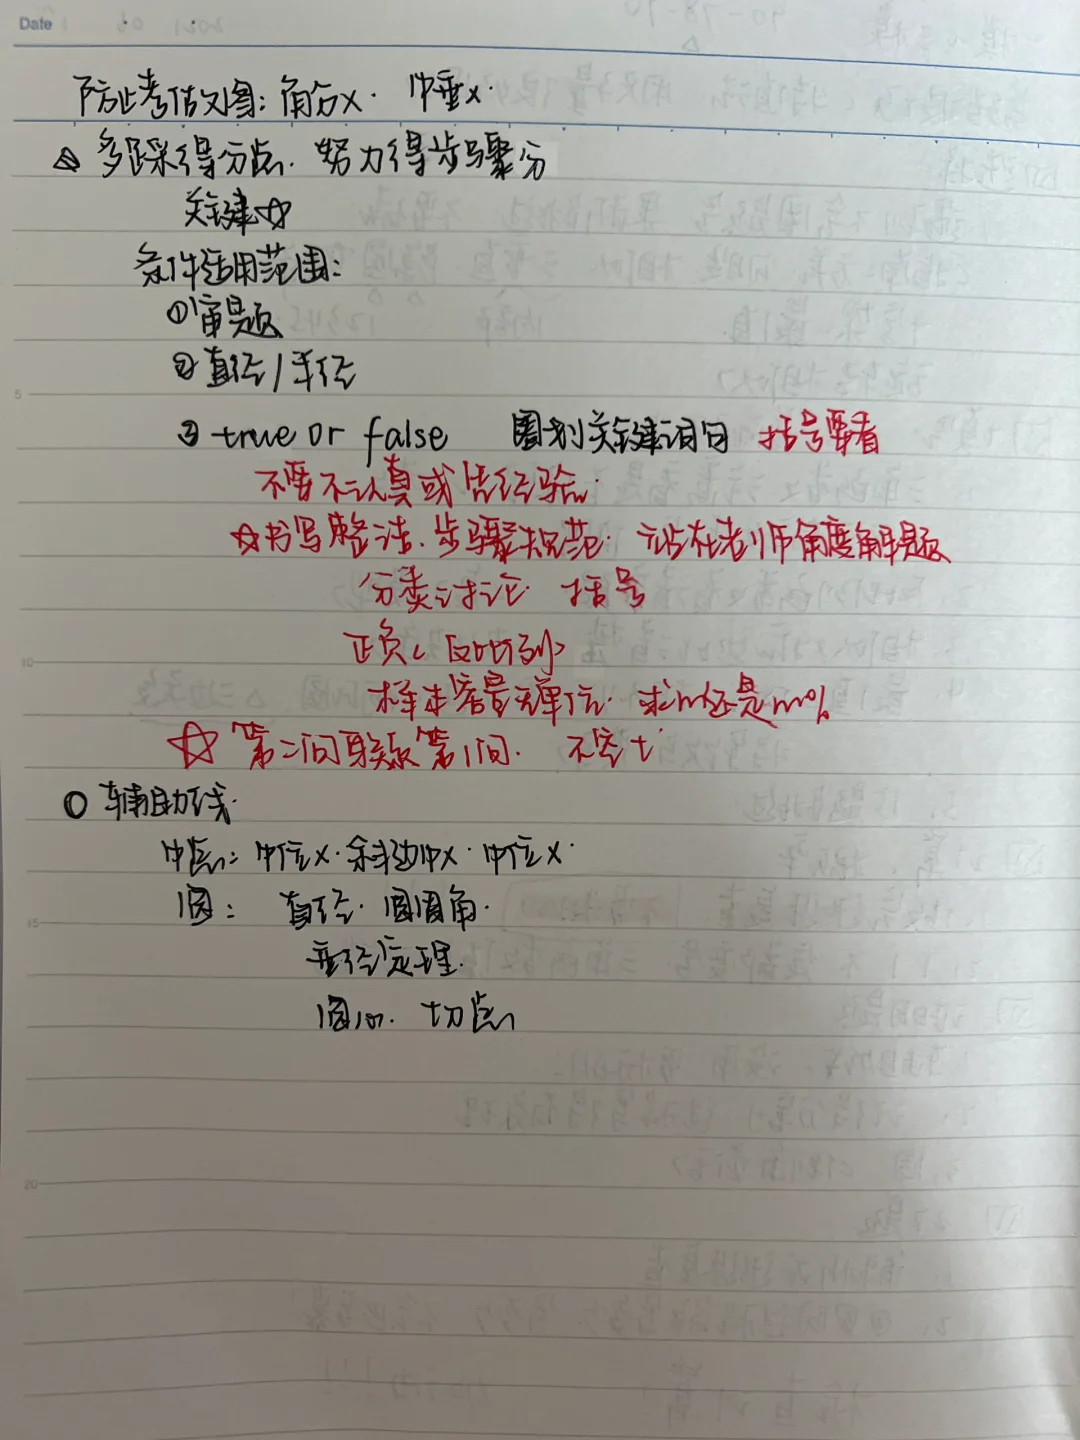 Date
防止考作图：角分x. 中垂x.
△ 多踩得分点. 努力得步骤分
关键☆
条件适用范围：
①审题
②直径/半径
③ true or false 圈划关键词句 括号要看
不要不认真或凭经验.
☆书写整洁. 步骤规范. 站在老师角度解题
分类讨论. 括号
正负(反比例)
样本容量无单位. 求m还是m%
☆ 第二问联系第1问.
5
○ 辅助线.
中点：中位x. 斜边中x. 中位x.
10
圆： 直径. 圆周角.
15
垂径定理.
圆心. 切点
20